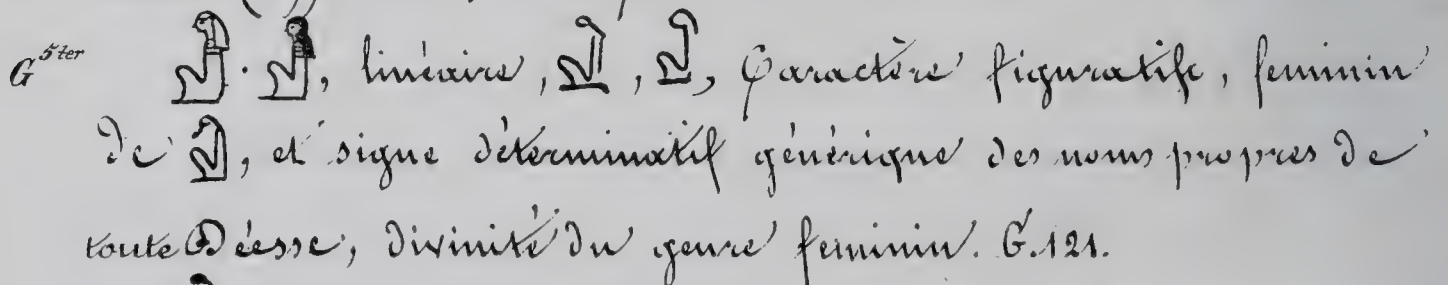 G 5ter 𓁐 · 𓁐, linéaire, 𓁐, 𓁐, Caractère figuratif, feminin
de 𓀭, et signe déterminatif générique des noms propres de
toute Déesse, divinité du genre feminin. G. 121.